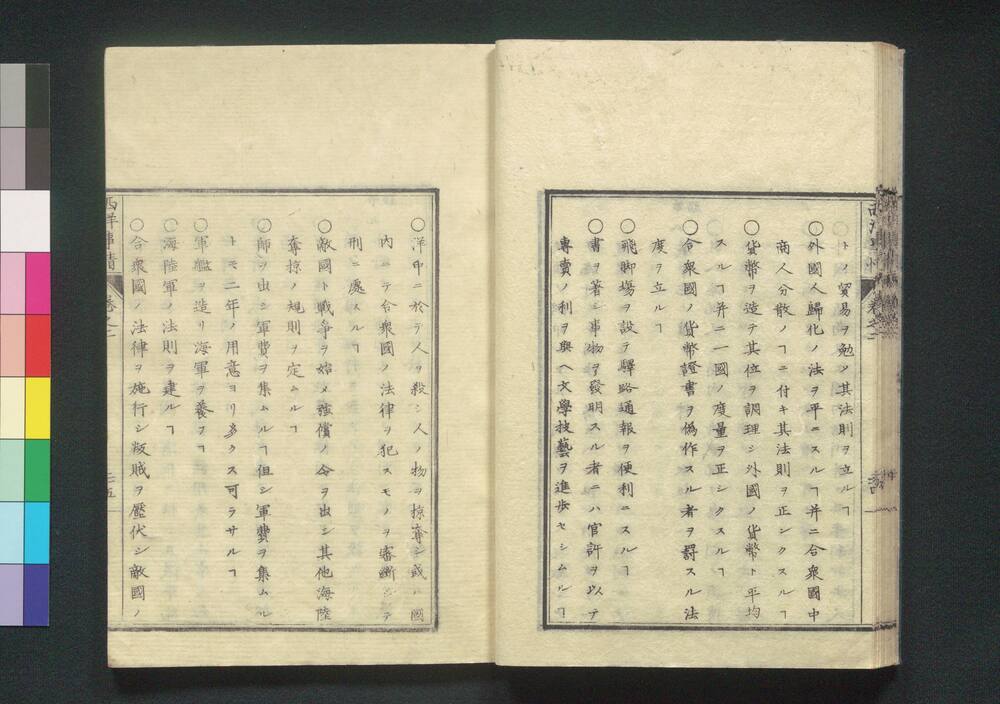 トノ貿易ヲ勉シ其法則ヲ立ルヿ
〇外國人歸化ノ法ヲ平ニスルヿ并ニ合衆國中
商人分散ノヿニ付キ其法則ヲ正シクスルヿ
〇貨幣ヲ造テ其位ヲ調理シ外國ノ貨幣ト平均
スルヿ并ニ一國ノ度量ヲ正シクスルヿ
〇合衆國ノ貨幣證書ヲ偽作スル者ヲ罸スル法
度ヲ立ルヿ
〇飛脚場ヲ設テ驛路通報ヲ便利ニスルヿ
〇書ヲ著シ事物ヲ發明スル者ニハ官許ヲ以テ
專賣ノ利ヲ與ヘ文學技藝ヲ進歩セシムルヿ
〇洋中ニ於テ人ヲ殺シ人ノ物ヲ掠奪シ或ハ國
内ニテ合衆國ノ法律ヲ犯スモノヲ審斷シテ
刑ニ處スルヿ
〇敵國ト戰爭ヲ始メ強償ノ令ヲ出シ其他海陸
奪掠ノ規則ヲ定ムルヿ
〇師ヲ出シ軍費ヲ集ムルヿ但シ軍費ヲ集ムル
トモ二年ノ用意ヨリ多クス可ラサルヿ
〇軍艦ヲ造リ海軍ヲ養フヿ
〇海陸軍ノ法則ヲ建ルヿ
〇合衆國ノ法律ヲ施行シ叛賊ヲ壓伏シ敵國ノ
西洋事情 卷之二